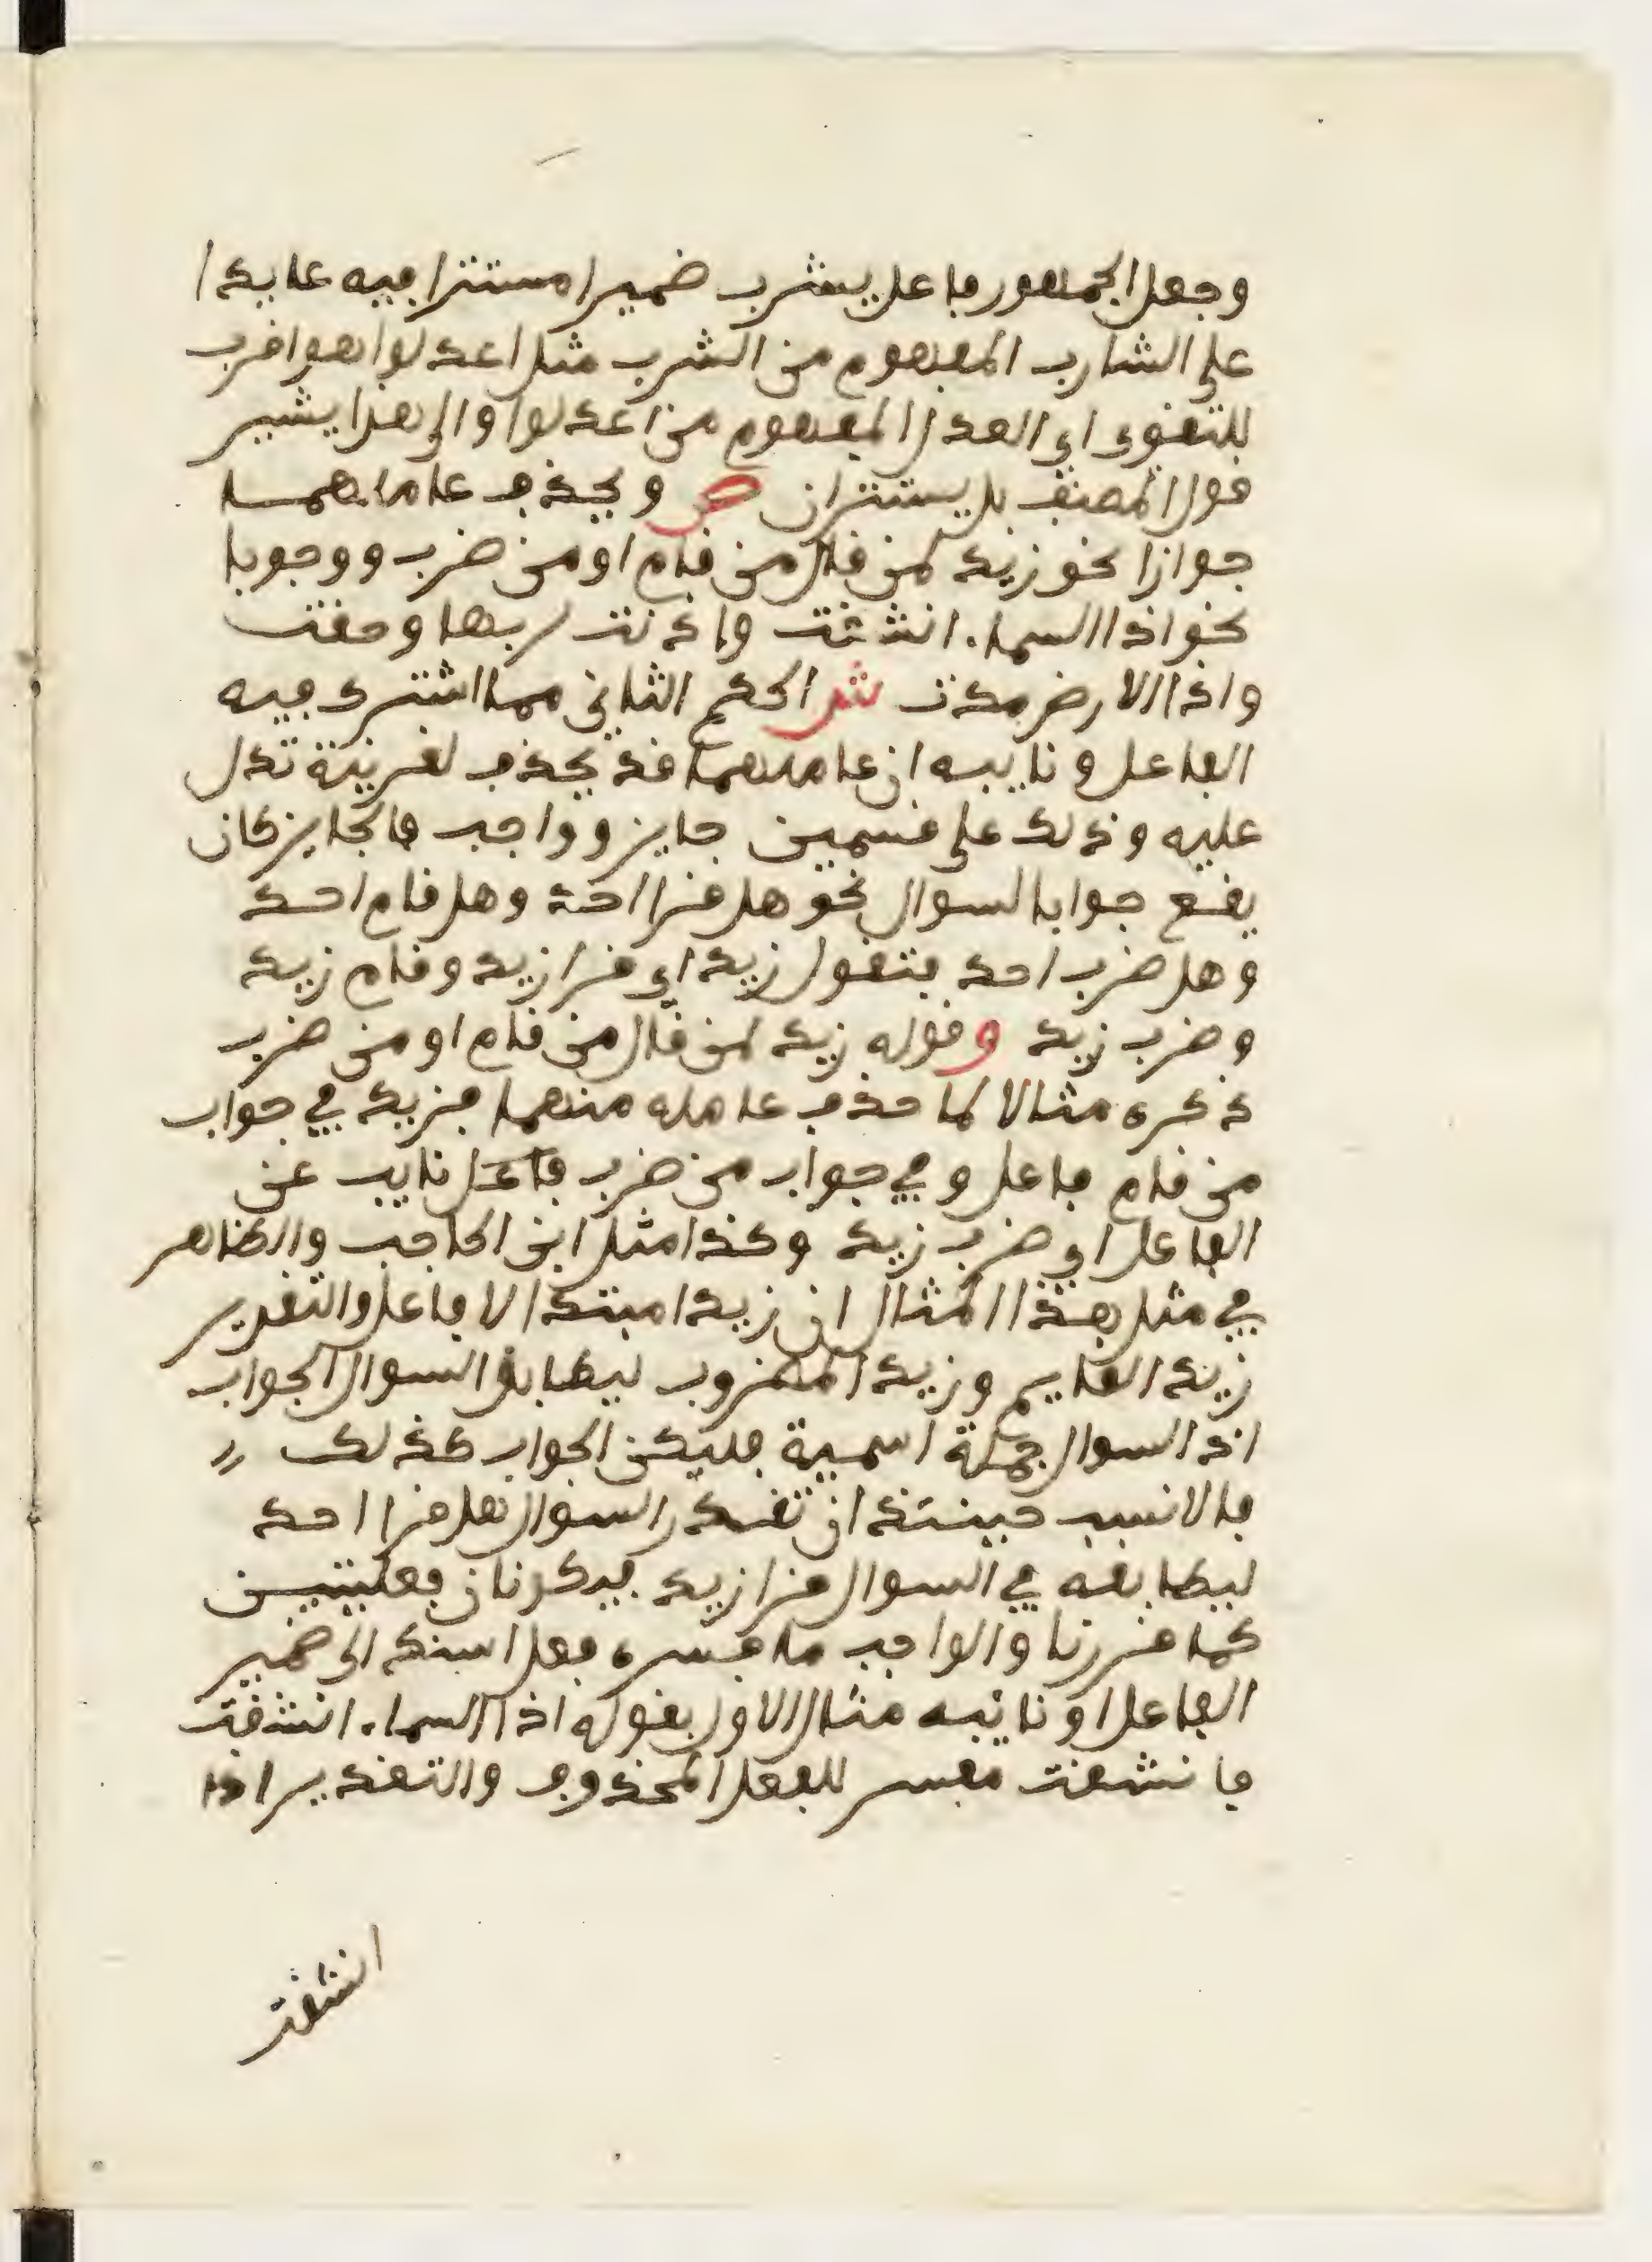 وجعل الجمهور فاعل يشرب ضميرا مستترا فيه عايدا
على الشارب المفهوم من الشرب مثل اعدلوا هو اقرب
للتقوى اي العدل المفهوم من اعدلوا والى هذا يشير
قول المصنف بل يستتران ص ويحذف عاملهمـا
جوازا نحو زيد لمن قال من قام او من ضرب ووجوبا
نحو اذا السماء انشقت واذنت لربها وحقت
واذا الارض مدت ش الحكم الثاني مما اشترك فيه
الفاعل ونايبه ان عاملهما قد يحذف لقرينة تدل
عليه وذلك على قسمين جايز وواجب فالجايز كان
يقع جوابا لسوال نحو هل قرا احد وهل قام احد
وهل ضرب احد فتقول زيد اي قرا زيد وقام زيد
وضرب زيد وقوله زيد لمن قال من قام او من ضرب
ذكره مثالا لما حذف عامله منهما فزيد في جواب
من قام فاعل وفي جواب من ضرب فاعل نايب عن
الفاعل اي ضرب زيد وكذا مثل ابن الحاجب والظاهر
في مثل هذا المثال ان زيدا مبتدا لا فاعل والتقدير
زيد القايم وزيد المضروب ليطابق السوال الجواب
اذ السوال جملة اسمية فليكن الجواب كذلك
فالانسب حينئذ ان تقدر السوال هل قرا احد
ليطابقه في السوال قرا زيد فيكونان فعليتين
كما قررنا والواجب ما فسره فعل اسند الى ضمير
الفاعل او نائبه مثال الاول بقوله اذا السماء انشقت
فانشقت مفسر للفعل المحذوف والتقدير اذا
انشقت